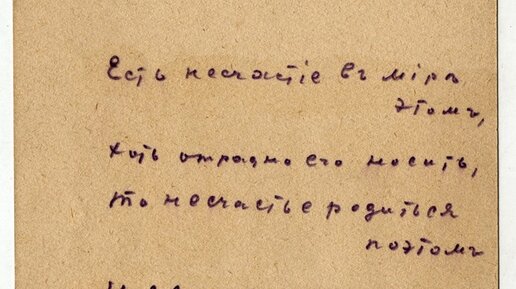 Есть несчастіе въ міръ
этомъ,
Хоть отрадно его носить,
то несчастье родиться
поэтомъ